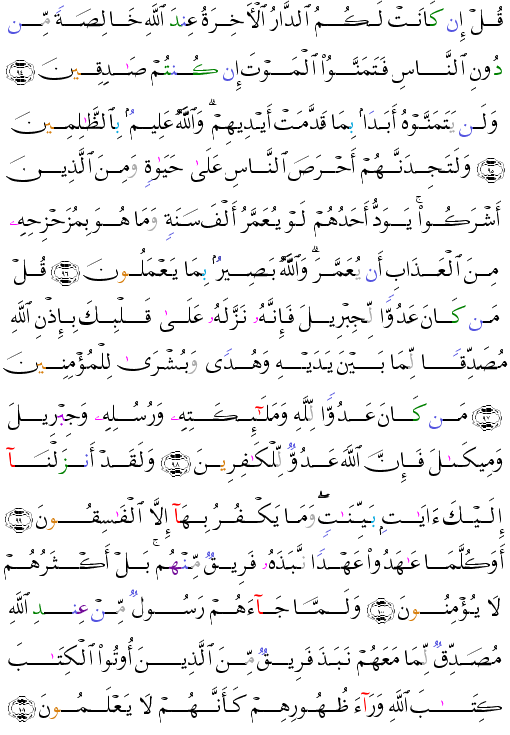 قُلْ إِن كَانَتْ لَكُمُ ٱلدَّارُ ٱلْأَخِرَةُ عِندَ ٱللَّهِ خَالِصَةً مِّن
دُونِ ٱلنَّاسِ فَتَمَنَّوُا۟ ٱلْمَوْتَ إِن كُنتُمْ صَٰدِقِينَ ﴿٩٤﴾
وَلَن يَتَمَنَّوْهُ أَبَدًۢا بِمَا قَدَّمَتْ أَيْدِيهِمْ ۗ وَٱللَّهُ عَلِيمٌۢ بِٱلظَّٰلِمِينَ
﴿٩٥﴾ وَلَتَجِدَنَّهُمْ أَحْرَصَ ٱلنَّاسِ عَلَىٰ حَيَوٰةٍ وَمِنَ ٱلَّذِينَ
أَشْرَكُوا۟ ۚ يَوَدُّ أَحَدُهُمْ لَوْ يُعَمَّرُ أَلْفَ سَنَةٍ وَمَا هُوَ بِمُزَحْزِحِهِۦ
مِنَ ٱلْعَذَابِ أَن يُعَمَّرَ ۗ وَٱللَّهُ بَصِيرٌۢ بِمَا يَعْمَلُونَ ﴿٩٦﴾ قُلْ
مَن كَانَ عَدُوًّا لِّجِبْرِيلَ فَإِنَّهُۥ نَزَّلَهُۥ عَلَىٰ قَلْبِكَ بِإِذْنِ ٱللَّهِ
مُصَدِّقًا لِّمَا بَيْنَ يَدَيْهِ وَهُدًى وَبُشْرَىٰ لِلْمُؤْمِنِينَ
﴿٩٧﴾ مَن كَانَ عَدُوًّا لِّلَّهِ وَمَلَٰٓئِكَتِهِۦ وَرُسُلِهِۦ وَجِبْرِيلَ
وَمِيكَىٰلَ فَإِنَّ ٱللَّهَ عَدُوٌّ لِّلْكَٰفِرِينَ ﴿٩٨﴾ وَلَقَدْ أَنزَلْنَآ
إِلَيْكَ ءَايَٰتٍۭ بَيِّنَٰتٍ ۖ وَمَا يَكْفُرُ بِهَآ إِلَّا ٱلْفَٰسِقُونَ ﴿٩٩﴾
أَوَكُلَّمَا عَٰهَدُوا۟ عَهْدًا نَّبَذَهُۥ فَرِيقٌ مِّنْهُم ۚ بَلْ أَكْثَرُهُمْ
لَا يُؤْمِنُونَ ﴿١٠٠﴾ وَلَمَّا جَآءَهُمْ رَسُولٌ مِّنْ عِندِ ٱللَّهِ
مُصَدِّقٌ لِّمَا مَعَهُمْ نَبَذَ فَرِيقٌ مِّنَ ٱلَّذِينَ أُوتُوا۟ ٱلْكِتَٰبَ
كِتَٰبَ ٱللَّهِ وَرَآءَ ظُهُورِهِمْ كَأَنَّهُمْ لَا يَعْلَمُونَ ﴿١٠١﴾